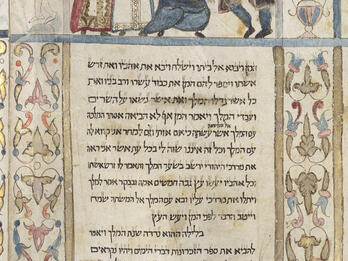 ויבוא אל ביתו וישלח ויבא את אהביו ואת זרש
אשתו ויספר להם המן את כבוד עשרו ורב בניו ואת
כל אשר גדלו המלך ואת אשר נשאו על השרים
ועבדי המלך ויאמר המן אף לא הביאה אסתר המלכה
אל המשתה
עם המלך אשר עשתה כי אם אותי וגם למחר אני קרוא לה
עם המלך וכל זה איננו שוה לי בכל עת אשר אני ראה
את מרדכי היהודי יושב בשער המלך ותאמר לו זרש אשתו
וכל אהביו יעשו עץ גבה חמשים אמה ובבקר אמר למלך
ויתלו את מרדכי עליו ובא עם המלך אל המשתה שמח
וייטב הדבר לפני המן ויעש העץ
בלילה ההוא נדדה שנת המלך ויאמר
להביא את ספר הזכרנות דברי הימים ויהיו נקראים